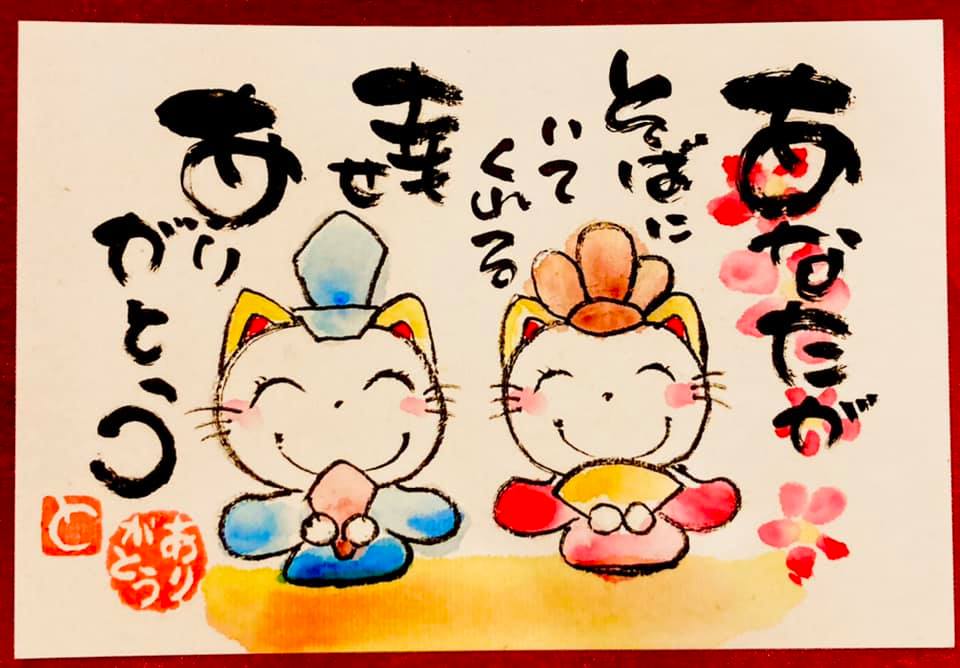 あなたが
そばに
いて
くれる
幸せ
あり
がとう
と
あり
がとう